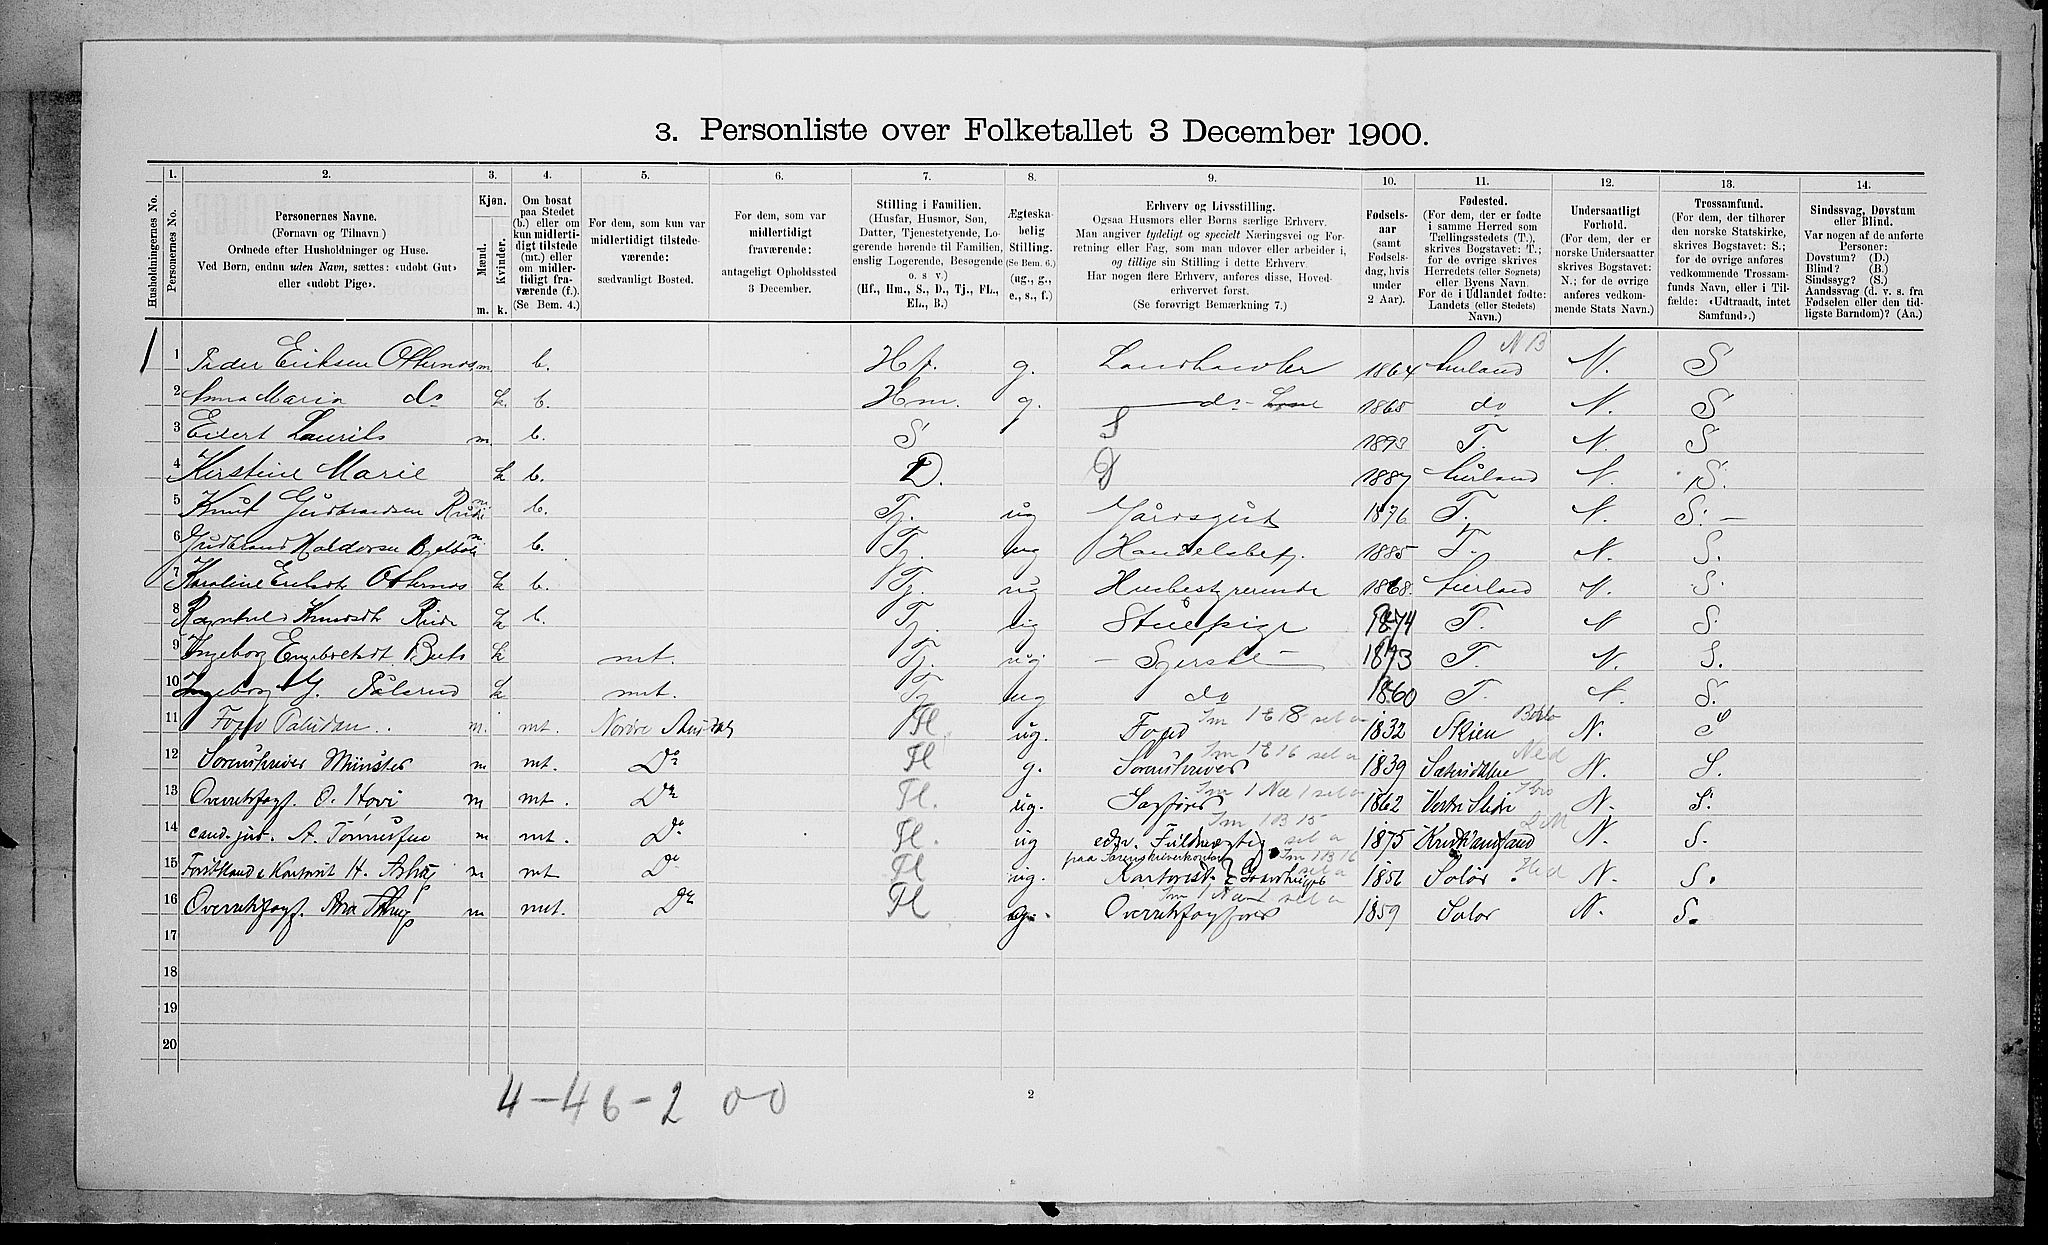 3. Personliste over Folketallet 3 December 1900.
1. 2. 3. 4. 5. 6. 7. 8. 9. 10. 11. 12. 13. 14.
Husholdningernes No.
Personernes No.
Personernes Navne.
(Fornavn og Tilnavn)
Ordnede efter Husholdninger og Huse.
Ved Børn, endnu uden Navn, sættes: «udøbt Gut»
eller «udøbt Pige».
Kjøn.
Mænd.
Kvinder.
m. k.
Om bosat
paa Stedet
(b.) eller om
kun midlerti-
digt tilstede
(mt.) eller
om midler-
tidigt fra-
værende (f.).
(Se Bem. 4.)
For dem, som kun var
midlertidigt tilstede-
værende:
sædvanligt Bosted.
For dem, som var
midlertidigt
fraværende:
antageligt Opholdssted
3 December.
Stilling i Familien.
(Husfar, Husmor, Søn,
Datter, Tjenestetyende, Lo-
gerende hørende til Familien,
enslig Logerende, Besøgende
o. s v.)
(Hf., Hm., S., D., Tj., FL.,
EL., B.)
Ægteska-
belig
Stilling.
(Se Bem. 6.)
(ug., g.,
e., s., f.)
Erhverv og Livsstilling.
Ogsaa Husmors eller Børns særlige Erhverv.
Man angiver tydeligt og specielt Næringsvei og For-
retning eller Fag, som man udøver eller arbeider i,
og tillige sin Stilling i dette Erhverv.
Har nogen flere Erhverv, anføres disse, Hoved-
erhvervet først.
(Se forøvrigt Bemærkning 7.)
Fødsels-
aar
(samt
Fødsels-
dag, hvis
under
2 Aar).
Fødested.
(For dem, der er fødte
i samme Herred som
Tællingsstedets (T.),
skrives Bogstavet: T.;
for de øvrige skrives
Herredets (eller Sognets)
eller Byens Navn.
For de i Udlandet fødte:
Landets (eller Stedets)
Navn.)
Undersaatligt
Forhold.
(For dem, der er
norske Undersaatter
skrives Bogstavet:
N.; for de øvrige
anføres vedkom-
mende Stats Navn.)
Trossamfund.
(For dem, der tilhører
den norske Statskirke,
skrives Bogstavet: S.;
for de øvrige anføres
vedkommende Trossam-
funds Navn, eller i Til-
fælde: «Udtraadt, intet
Samfund».)
Sindssvag, Døvstum
eller Blind.
Var nogen af de anførte
Personer:
Døvstum? (D.)
Blind? (B.)
Sindssyg? (S.)
Aandssvag (d. v. s. fra
Fødselen eller den tid-
ligste Barndom)? (Aa.)
1 1 Peder Eriksen Othernes m. b. Hf. g. Landhandler 1864 N B N. S
2 Anna Maria do k. b. Hm. g. do 1865 do N. S
3 Eilert Laurits m. b. S S 1893 T. N. S
4 Kirstine Marie k b. D. D 1887 N. S.
5 Knut Gudbrandsen m b. Tj. ug Gårdsgut 1876 T. N. S. —
6 Gudbrand m b. Tj. ug Handelsbetj. 1885 T. N. S.
7 Karoline Eriksdt Othernes k b. Tj. ug Husbestyrerinde 1868 N. S.
8 Ragnhild Knudsdt k b. Tj. ug Stuepige 1874 T. N S.
9 Ingeborg Engebretsdt k mt. Tj. ug — Syerske — 1873 T. N. S.
10 Ingeborg G. Pålsrud k mt. Tj ug do 1860 T. N. S.
11 Foged Paludan m. mt. Nordre Fl ug. Foged 1832 Skien N. S
12 Sorenskriver Münster m mt. Do Fl g. Sorenskriver 1839 N. S.
13 Overretssagf. O. Hovi m mt. Do Fl. ug. Sagfører 1862 Vestre Slidre N. S.
14 cand. jur. A. m mt. Do Fl. ug edsv. Fuldmægtig 1875 N. S.
paa Sorenskriverkontor
15 H. m mt Do Fl ug. Kontorist 1856 Solør Hed N. S.
16 Overretssagf. m mt. Do Fl g. Overretssagfører 1859 Solør N. S.
17
18
19
20
4 – 46 – 2 0 0
2